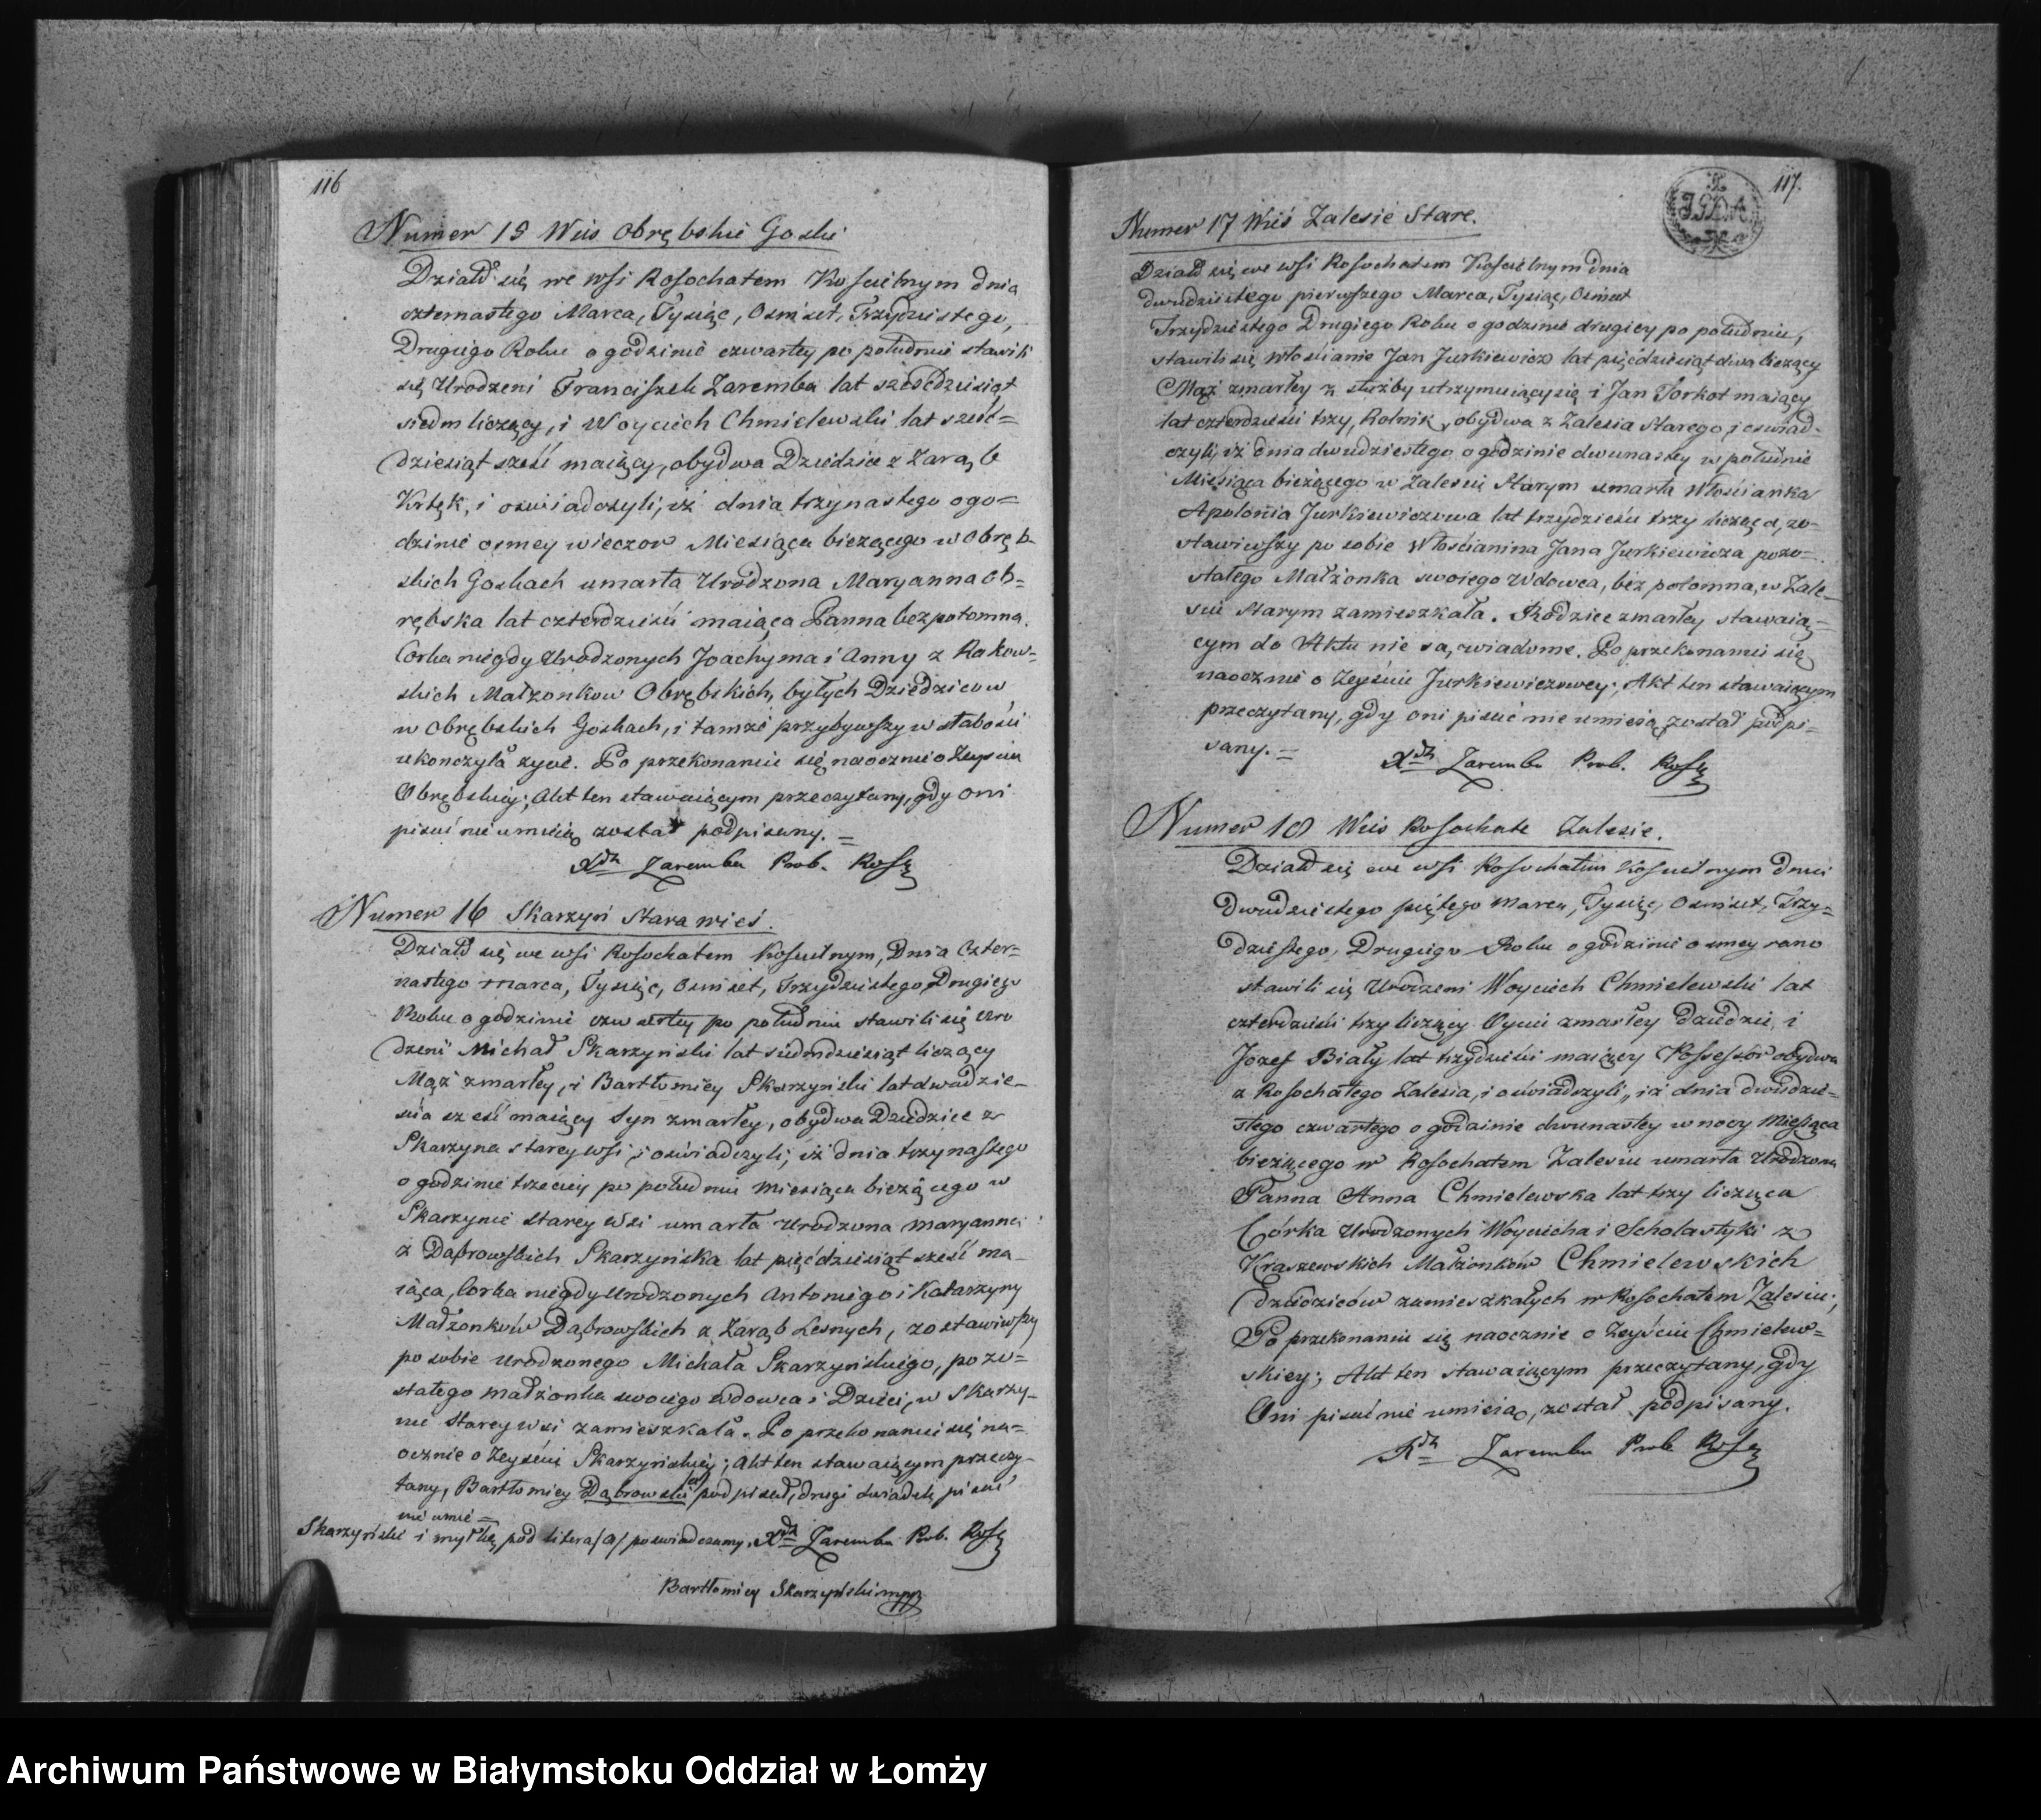 116
Numer 15 Wieś Obrębskie Goski
Działo się we wsi Rosochatem Kościelnym dnia
czternastego Marca, Tysiąc, Osmset, Trzydziestego,
Drugiego Roku o godzinie czwartey po południu stawili
się Urodzeni Franciszek Zaremba lat sześćdziesiąt
siedm liczący, i Woyciech Chmielewski lat sześć=
dziesiąt sześć maiący, obydwa Dziedzice z Zarąb
Krtęk, i oświadczyli, iż dnia trzynastego o go=
dzinie osmey wieczor Miesiąca bieżącego w Obręb-
skich Goskach umarła Urodzona Maryanna Ob=
rębska lat czterdzieści maiąca Panna bezpotomna.
Corka niegdy Urodzonych Joachyma i Anny z Rakow=
skich Małzonkow Obrębskich, byłych Dziedzicow
w Obrębskich Goskach, i tamże przybywszy w słabości
ukonczyła zycie. Po przekonaniu się naocznie o Zeyściu
Obrębskiey; Akt ten stawaiącym przeczytany, gdy oni
pisać nie umieią został podpisany. =
Xdz Zaremba Prob. Ros
Numer 16 Skarzyń Stara wieś.
Działo się we wsi Rosochatem Kościelnym, Dnia Czter=
nastego Marca, Tysiąc, Osmset, Trzydziestego Drugiego
Roku o godzinie czwartey po południu stawili się Uro
dzeni Michał Skarzyński lat siedmdziesiąt liczący
Mąż zmarłey, i Bartłomiey Skarzyński lat dwadzie-
ścia sześć maiący Syn zmarłey, obydwa Dziedzice z
Skarzyna Starey wsi, i oświadczyli, iż dnia trzynastego
o godzinie trzeciey po południu Miesiąca bieżącego w
Skarzynie Starey Wsi umarła Urodzona Maryanna
z Dąbrowskich Skarzyńska lat pięćdziesiąt sześć ma-
iąca, Corka niegdy Urodzonych Antoniego i Katarzyny
Małżonków Dąbrowskich z Zarąb Lesnych, zostawiwszy
po sobie Urodzonego Michała Skarzyńskiego, pozo=
stałego małżonka swoiego wdowca i Dzieci, w Skarzy-
nie Starey wsi zamieszkała. Po przekonaniu się na=
ocznie o Zeyściu Skarzyńskiey; Akt ten stawaiącym przeczy-
tany, Bartłomiey Dąbrowski /a/ podpisał, drugi świadek pisać
nie umie =
Skarzyński i myłkę pod litera /a/ poswiadczamy. Xdz Zaremba Prob. Ros
Bartłomiey Skarzyński mpp
117.
Numer 17 Wieś Zalesie Stare.
Działo się we wsi Rosochatem Kościelnym dnia
dwudziestego pierwszego Marca, Tysiąc, Osmset
Trzydziestego Drugiego Roku o godzinie drugiey po południu,
stawili się Włościanie Jan Jurkiewicz lat pięćdziesiąt dwa liczący
Mąż zmarłey z służby utrzymuiący się i Jan Torkot maiący
lat czterdzieści trzy, Rolnik, obydwa z Zalesia Starego, i oswiad-
czyli, iż dnia dwudziestego o godzinie dwunastey w południe
Miesiąca bieżącego w Zalesiu Starym umarła Włościanka
Apolonia Jurkiewiczowa lat trzydzieści trzy licząca, zo-
stawiwszy po sobie Włościanina Jana Jurkiewicza pozo=
stałego Małżonka swoiego Wdowca, bez potomna, w Zale-
siu Starym zamieszkała. Rodzice zmarłey stawaią=
cym do Aktu nie są, wiadome. Po przekonaniu się
naocznie o Zeyściu Jurkiewiczowey; Akt ten stawaiącym
przeczytany, gdy oni pisać nie umieią został podpi=
sany. =
Xdz Zaremba Prob. Ros
Numer 18 Wieś Rosochate Zalesie.
Działo się we wsi Rosochatem Kościelnym dnia
Dwudziestego piątego Marca, Tysiąc, Osmset, Trzy=
dziestego, Drugiego Roku o godzinie osmey rano
stawili się Urodzeni Woyciech Chmielewski lat
czterdzieści trzy liczący Oyciec zmarłey Dziedzic, i
Jozef Biały lat trzydzieści maiący Possessor obydwa
z Rosochatego Zalesia, i oświadczyli, iż dnia dwudzie=
stego czwartego o godzinie dwunastey w nocy Miesiąca
bieżącego w Rosochatem Zalesiu umarła Urodzona
Panna Anna Chmielewska lat trzy licząca
Córka Urodzonych Woyciecha i Scholastyki z
Kraszewskich Małżonków Chmielewskich
Dziedziców zamieszkałych w Rosochatem Zalesiu;
Po przekonaniu się naocznie o Zeyściu Chmielew=
skiey; Akt ten stawaiącym przeczytany, gdy
Oni pisać nie umieią, został podpisany.
Xdz Zaremba Prob Ros
Archiwum Państwowe w Białymstoku Oddział w Łomży